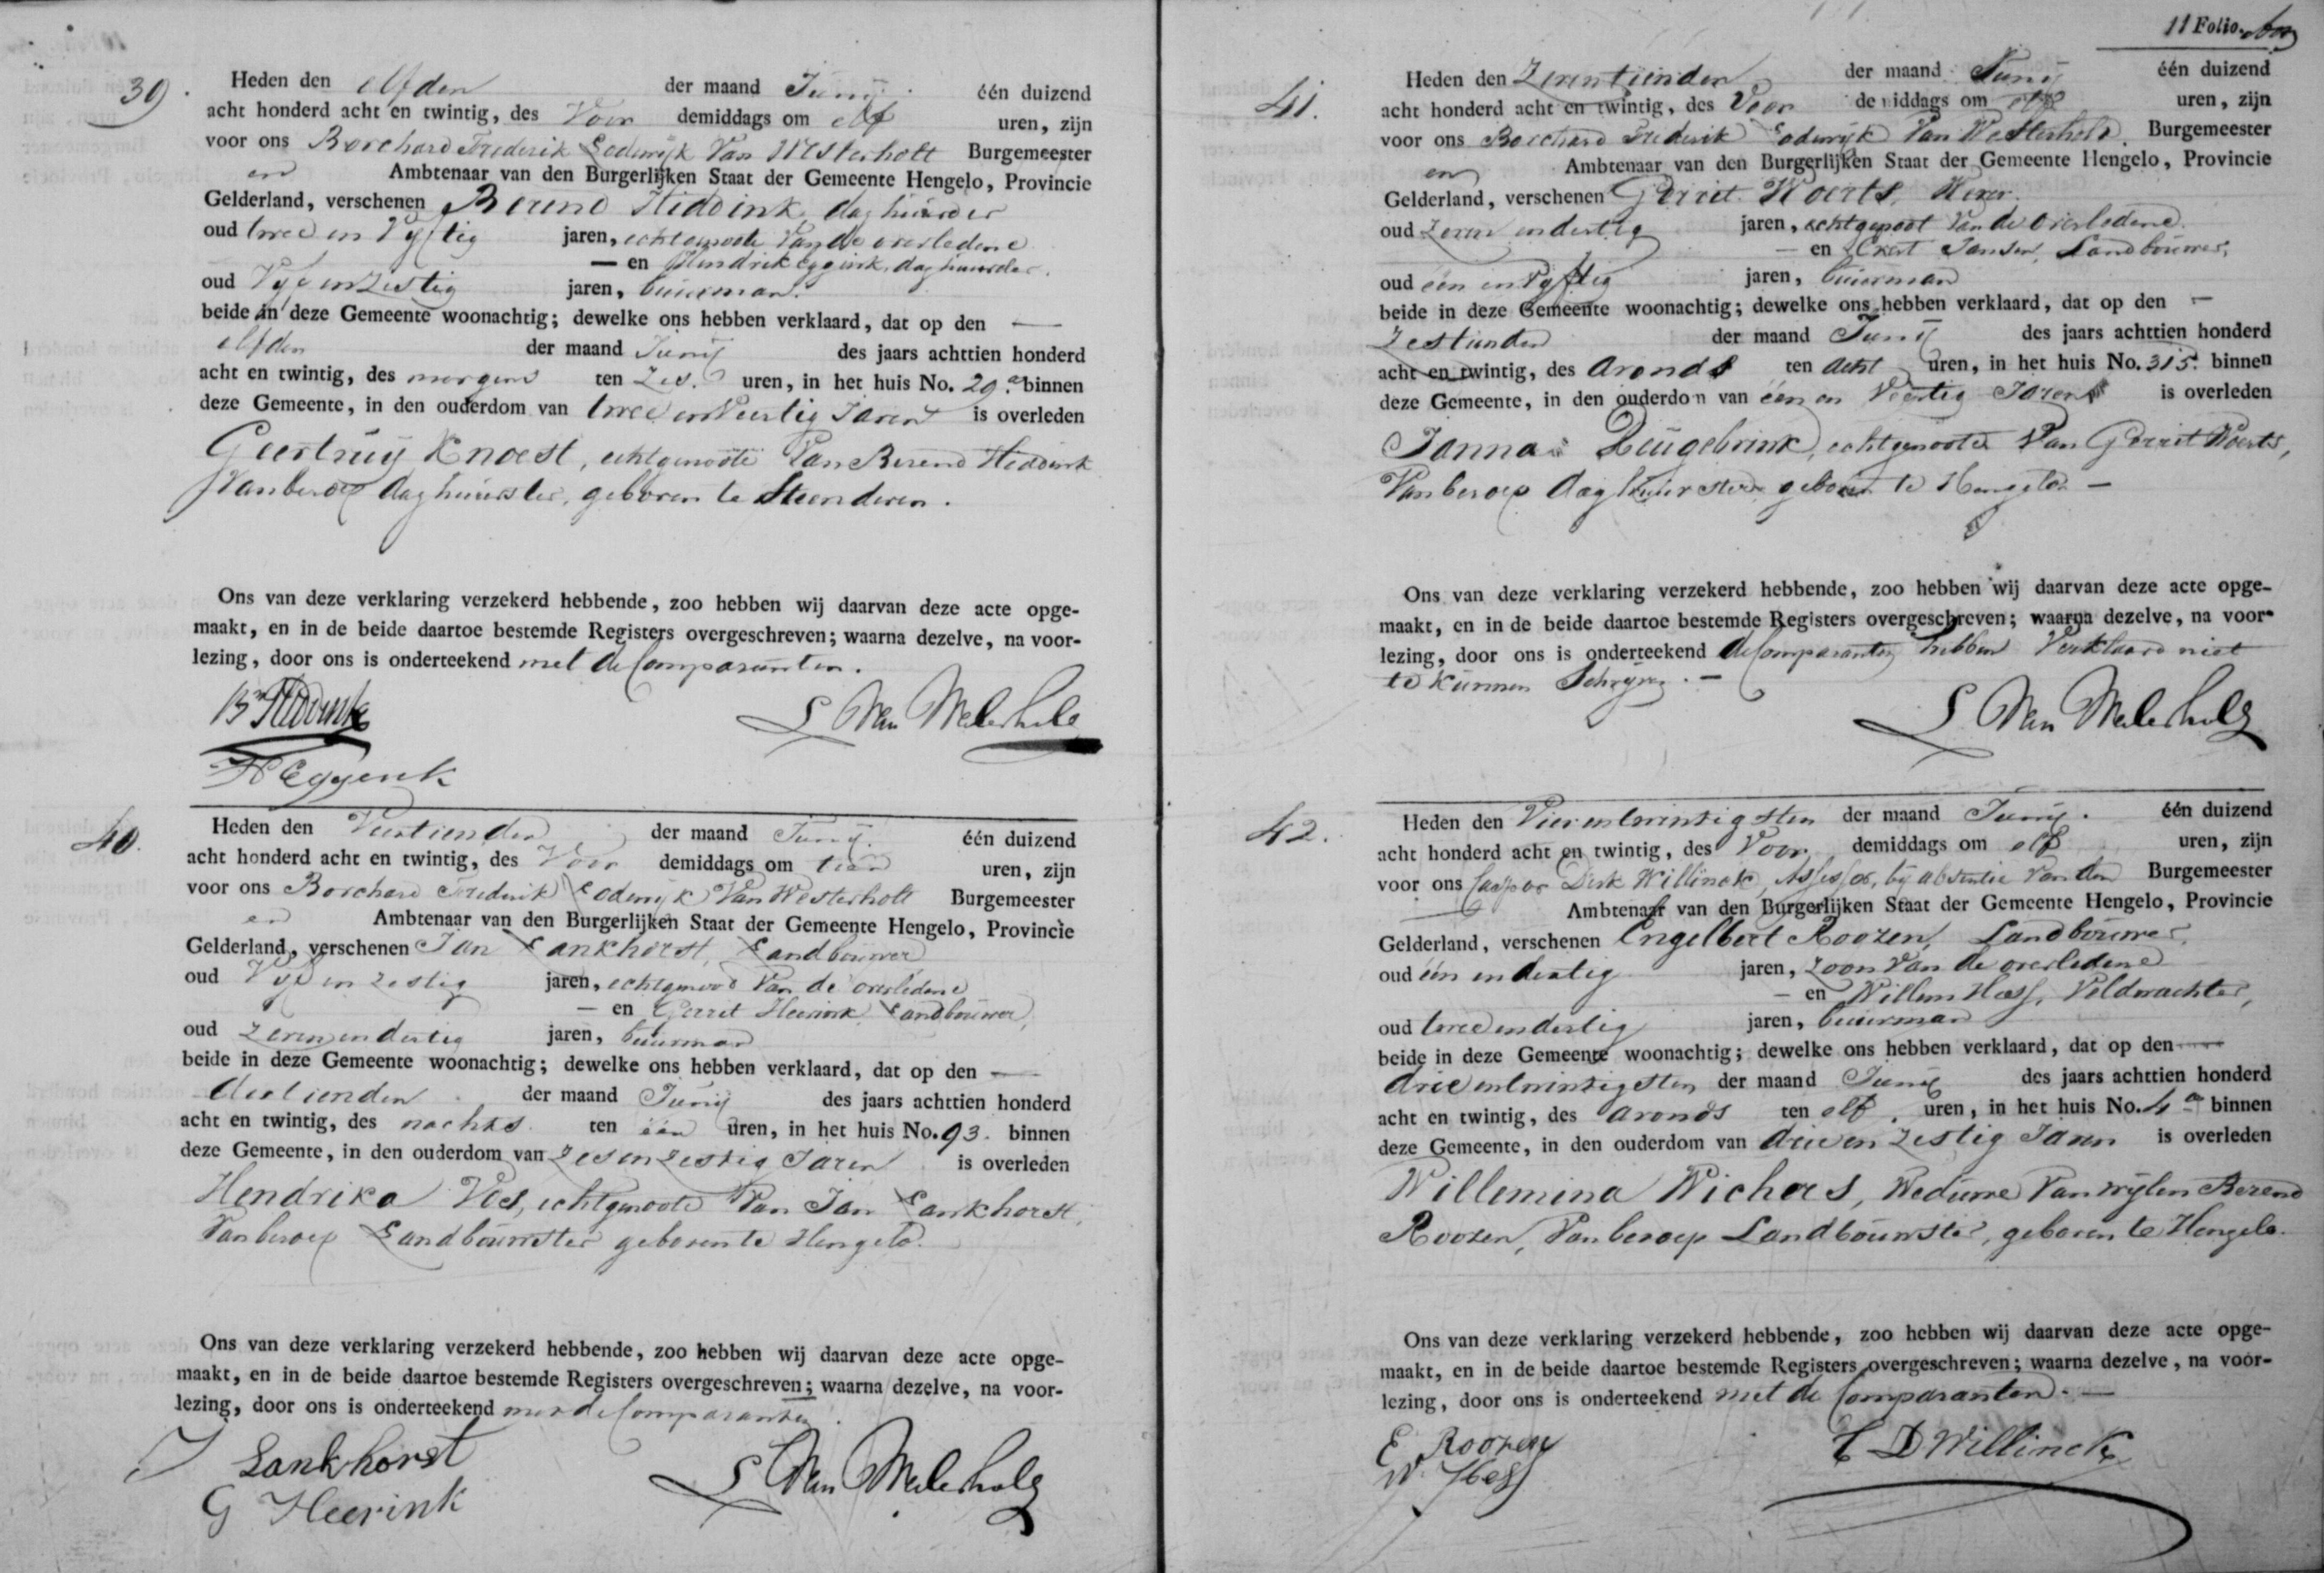 39.
Heden den elfden der maand Junij één duizend
acht honderd acht en twintig, des Voor demiddags om elf uren, zijn
voor ons Borchard Frederik Lodewijk Van Westerholt Burgemeester
en Ambtenaar van den Burgerlijken Staat der Gemeente Hengelo, Provincie
Gelderland, verschenen Berend Hiddink, daghuurder
oud twee en Vyftig jaren, echtgenoote Van de overledene
— en Hendrik Eggink, daghuurder,
oud Vyf en Zestig jaren, buurman.
beide in deze Gemeente woonachtig; dewelke ons hebben verklaard, dat op den —
elfden der maand Junij des jaars achttien honderd
acht en twintig, des morgens ten Zes. uren, in het huis No. 29.a binnen
deze Gemeente, in den ouderdom van twee en Veertig Jaren is overleden
Geertruij Knoest, echtgenoote Van Berend Hiddink
Van beroep daghuurster, geboren te Steenderen.
Ons van deze verklaring verzekerd hebbende, zoo hebben wij daarvan deze acte opge-
maakt, en in de beide daartoe bestemde Registers overgeschreven; waarna dezelve, na voor-
lezing, door ons is onderteekend met de Comparanten.
B Hiddink
L Van Westerholt
H Eggenk
40.
Heden den Veertienden der maand Junij. één duizend
acht honderd acht en twintig, des Voor demiddags om tien uren, zijn
voor ons Borchard Frederik Lodewijk Van Westerholt Burgemeester
en Ambtenaar van den Burgerlijken Staat der Gemeente Hengelo, Provincie
Gelderland, verschenen Jan Lankhorst, Landbouwer
oud Vyf en Zestig jaren, echtgenoot Van de overledene
— en Gerrit Heerink Landbouwer,
oud Zeven en dertig jaren, buurman
beide in deze Gemeente woonachtig; dewelke ons hebben verklaard, dat op den —
dertienden der maand Junij des jaars achttien honderd
acht en twintig, des nachts ten één uren, in het huis No. 93. binnen
deze Gemeente, in den ouderdom van Zes en Zestig Jaren is overleden
Hendrika Vos, echtgenoote Van Jan Lankhorst,
Van beroep Landbouwster geboren te Hengelo.
Ons van deze verklaring verzekerd hebbende, zoo hebben wij daarvan deze acte opge-
maakt, en in de beide daartoe bestemde Registers overgeschreven; waarna dezelve, na voor-
lezing, door ons is onderteekend met de Comparanten.
J Lankhorst
G Heerink
L Van Westerholt
11 Folio.
41.
Heden den Zeventienden der maand Junij één duizend
acht honderd acht en twintig, des Voor demiddags om elf uren, zijn
voor ons Borchard Frederik Lodewijk Van Westerholt Burgemeester
en Ambtenaar van den Burgerlijken Staat der Gemeente Hengelo, Provincie
Gelderland, verschenen Gerrit Woerts, Wever
oud Zeven en dertig jaren, echtgenoot Van de overledene.
— en Evert Jansen, Landbouwer,
oud één en Vyftig jaren, buurman
beide in deze Gemeente woonachtig; dewelke ons hebben verklaard, dat op den —
Zestienden der maand Junij des jaars achttien honderd
acht en twintig, des avonds ten acht uren, in het huis No. 315. binnen
deze Gemeente, in den ouderdom van één en Veertig Jaren is overleden
Janna Deugebrink, echtgenoote Van Gerrit Woerts,
Van beroep daghuurster geboren te Hengelo —
Ons van deze verklaring verzekerd hebbende, zoo hebben wij daarvan deze acte opge-
maakt, en in de beide daartoe bestemde Registers overgeschreven; waarna dezelve, na voor-
lezing, door ons is onderteekend de Comparanten hebben Verklaard niet
te kunnen Schryven. —
L Van Westerholt
42.
Heden den Vier en twintigsten der maand Junij. één duizend
acht honderd acht en twintig, des Voor demiddags om elf uren, zijn
voor ons Caspar Dirk Willinck, Assessor, bij absentie Van den Burgemeester
Ambtenaar van den Burgerlijken Staat der Gemeente Hengelo, Provincie
Gelderland, verschenen Engelbert Roozen, Landbouwer,
oud één en dertig jaren, Zoon Van de overledene
— en Willem Hess, Veldwachter,
oud twee en dertig jaren, buurman
beide in deze Gemeente woonachtig; dewelke ons hebben verklaard, dat op den —
drie en twintigsten der maand Junij des jaars achttien honderd
acht en twintig, des avonds ten elf. uren, in het huis No. 4 a binnen
deze Gemeente, in den ouderdom van drie en Zestig Jaren is overleden
Willemina Wichers, Weduwe Van wylen Berend
Roozen, Van beroep Landbouwster, geboren te Hengelo.
Ons van deze verklaring verzekerd hebbende, zoo hebben wij daarvan deze acte opge-
maakt, en in de beide daartoe bestemde Registers overgeschreven; waarna dezelve, na voor-
lezing, door ons is onderteekend met de Comparanten. —
E. Roozen
W. Hess
C D Willinck